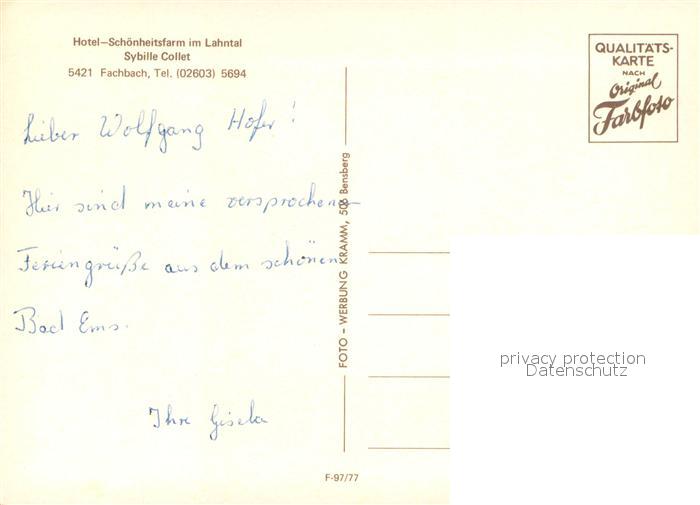 Hotel—Schönheitsfarm im Lahntal
Sybille Collet
5421 Fachbach, Tel. (02603) 5694
QUALITÄTS-
KARTE
NACH
Original
Farbfoto
Lieber Wolfgang Hofer!
Hier sind meine versprochenen
Feriengrüße aus dem schönen
Bad Ems.
Ihre Gisela
FOTO – WERBUNG KRAMM, 506 Bensberg
privacy protection
Datenschutz
F-97/77